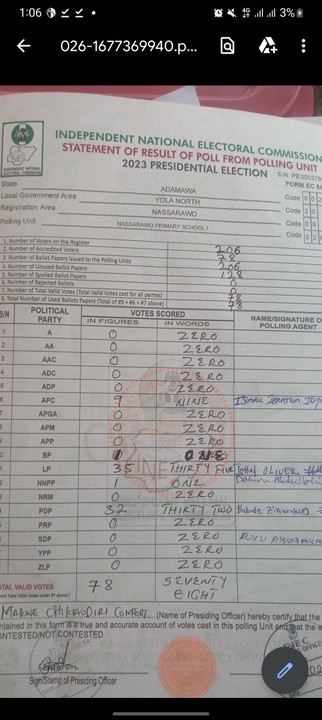 1:06
4G
3%
026-1677369940.p...
INDEPENDENT NATIONAL ELECTORAL COMMISSION
STATEMENT OF RESULT OF POLL FROM POLLING UNIT
2023 PRESIDENTIAL ELECTION
INDEPENDENT NATIONAL ELECTORAL COMMISSION
FORM EC
State ADAMAWA Code 0 0 2
Local Government Area YOLA NORTH Code 2 0
Registration Area NASSARAWO Code 0
Polling Unit NASSARAWO PRIMARY SCHOOL I Code 0
1. Number of Voters on the Register 206
2. Number of Accredited Voters 78
3. Number of Ballot Papers issued to the Polling Units 206
4. Number of Unused Ballot Papers 128
5. Number of Spoiled Ballot Papers 0
6. Number of Rejected Ballots 0
7. Number of Total Valid Votes (Total Valid Votes cast for all parties) 78
8. Total Number of Used Ballots Papers (Total of #5 + #6 + #7 above) 78
S/N POLITICAL PARTY VOTES SCORED NAME/SIGNATURE O POLLING AGENT
IN FIGURES IN WORDS
1 A 0 ZERO
2 AA 0 ZERO
3 AAC 0 ZERO
4 ADC 0 ZERO
5 ADP 0 ZERO
6 APC 9 NINE
7 APGA 0 ZERO
8 APM 0 ZERO
9 APP 0 ZERO
0 BP
1 LP 35 THIRTY FIVE OLIVER
2 NNPP 1 ONE
3 NRM 0 ZERO
4 PDP 32 THIRTY TWO
5 PRP 0 ZERO
6 SDP 0 ZERO ALIYU
YPP 0 ZERO
ZLP 0 ZERO
TOTAL VALID VOTES 78 SEVENTY EIGHT
(Name of Presiding Officer) hereby certify that the
ntained in this form is a true and accurate account of votes cast in this polling Unit and that the e
ONTESTED/NOT CONTESTED
Sign/Stamp of Presiding Officer
INEC